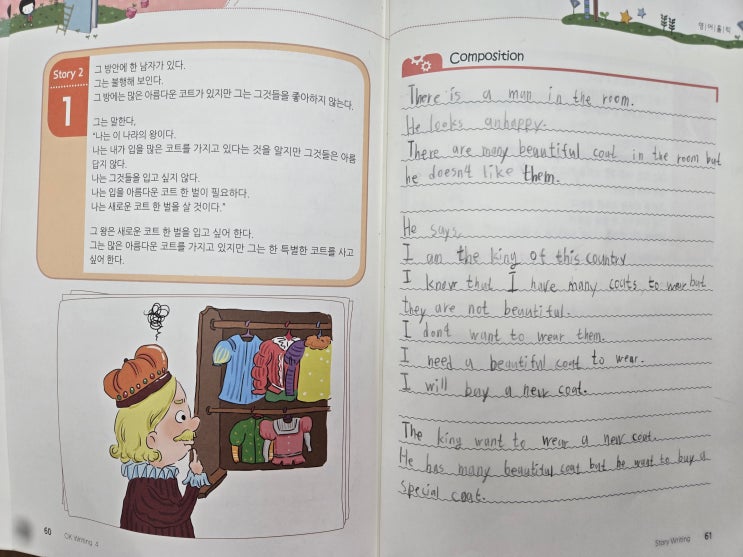 Story 2
1
그 방안에 한 남자가 있다.
그는 불행해 보인다.
그 방에는 많은 아름다운 코트가 있지만 그는 그것들을 좋아하지 않는다.
그는 말한다,
"나는 이 나라의 왕이다.
나는 내가 입을 많은 코트를 가지고 있다는 것을 알지만 그것들은 아름
답지 않다.
나는 그것들을 입고 싶지 않다.
나는 입을 아름다운 코트 한 벌이 필요하다.
나는 새로운 코트 한 벌을 살 것이다."
그 왕은 새로운 코트 한 벌을 입고 싶어 한다.
그는 많은 아름다운 코트를 가지고 있지만 그는 한 특별한 코트를 사고
싶어 한다.
60 OK Writing 4
영|어|홀|릭
Composition
There is a man in the room.
He looks anhappy.
There are many beautiful coat in the room but
he doesnt like them.
He says,
I am the king of this country
I know that I have many coats to wear but
they are not beautiful.
I dont want to wear them.
I need a beautiful coat to wear.
I will buy a new coat.
The king want to wear a new coat.
He has many beautiful coat but he want to buy a
special coat.
Story Writing 61